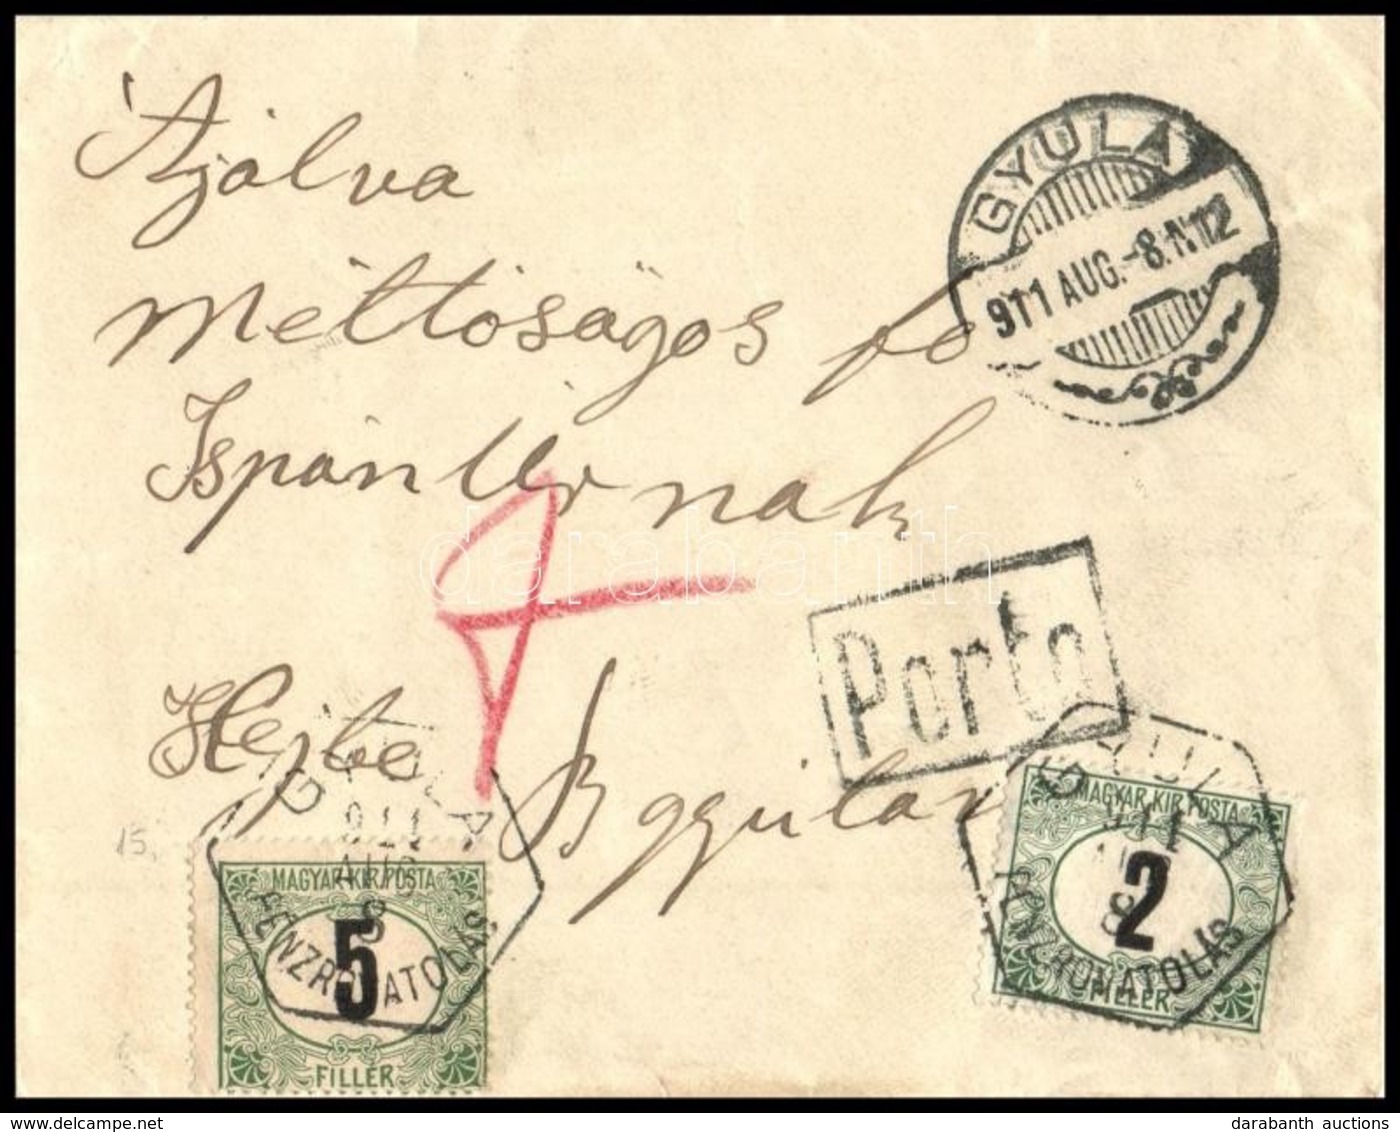 Ajálva
Méltóságos fő
Ispán Úrnak
Helybe B gyulán
GYULA
911 AUG.-8.N12
Porto
darabanth
15.
GYULA
911
AUG
8
PÉNZROVATOLÁS
MAGYAR KIR. POSTA
5
FILLÉR
GYULA
911
AUG
8
PÉNZROVATOLÁS
MAGYAR KIR. POSTA
2
FILLÉR
darabanth auctions